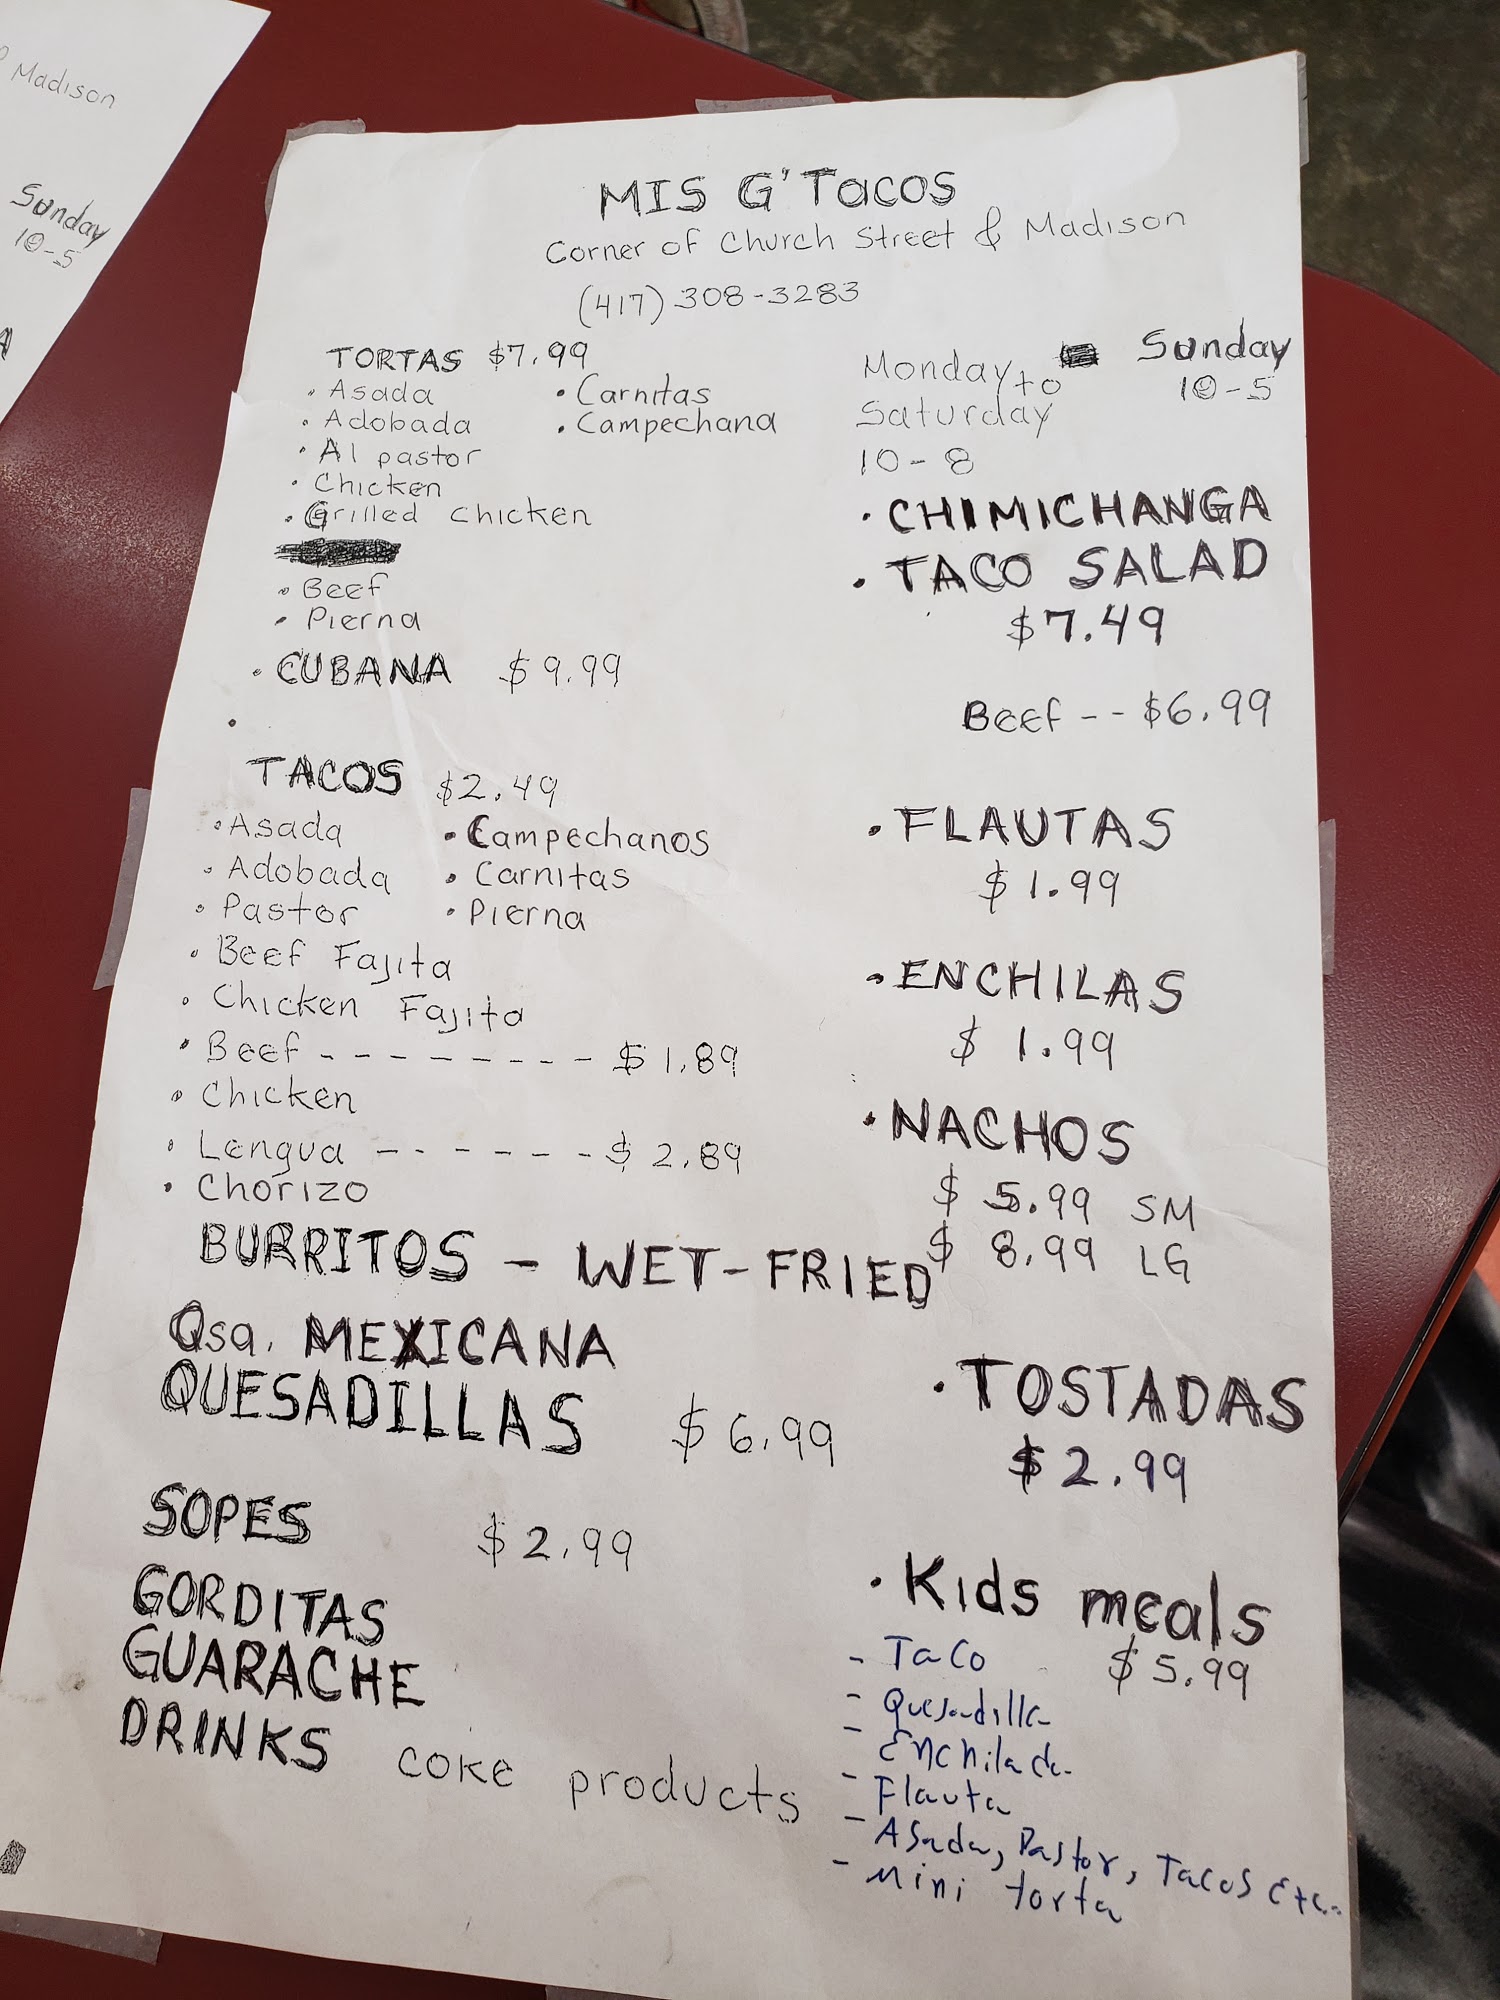 Madison
Sunday
10-5
MIS G'TACOS
Corner of Church Street & Madison
(417) 308-3283
TORTAS $7.99
• Asada
• Carnitas
• Adobada
• Campechana
• Al pastor
• Chicken
• Grilled chicken
• Beef
• Pierna
• CUBANA $9.99
•
TACOS $2.49
• Asada
• Campechanos
• Adobada
• Carnitas
• Pastor
• Pierna
• Beef Fajita
• Chicken Fajita
• Beef - - - - - - - - - $1.89
• Chicken
• Lengua - - - - - - - $2.89
• Chorizo
BURRITOS - WET-FRIED
Qsa. MEXICANA
QUESADILLAS $6.99
SOPES $2.99
GORDITAS
GUARACHE
DRINKS coke products
Monday to
Saturday
10-8
Sunday
10-5
• CHIMICHANGA
• TACO SALAD
$7.49
Beef -- $6.99
• FLAUTAS
$1.99
• ENCHILAS
$1.99
• NACHOS
$5.99 SM
$8.99 LG
• TOSTADAS
$2.99
• Kids meals
$5.99
- Taco
- Quesadilla
- Enchilada
- Flauta
- Asada, Pastor, Tacos Etc..
- Mini torta